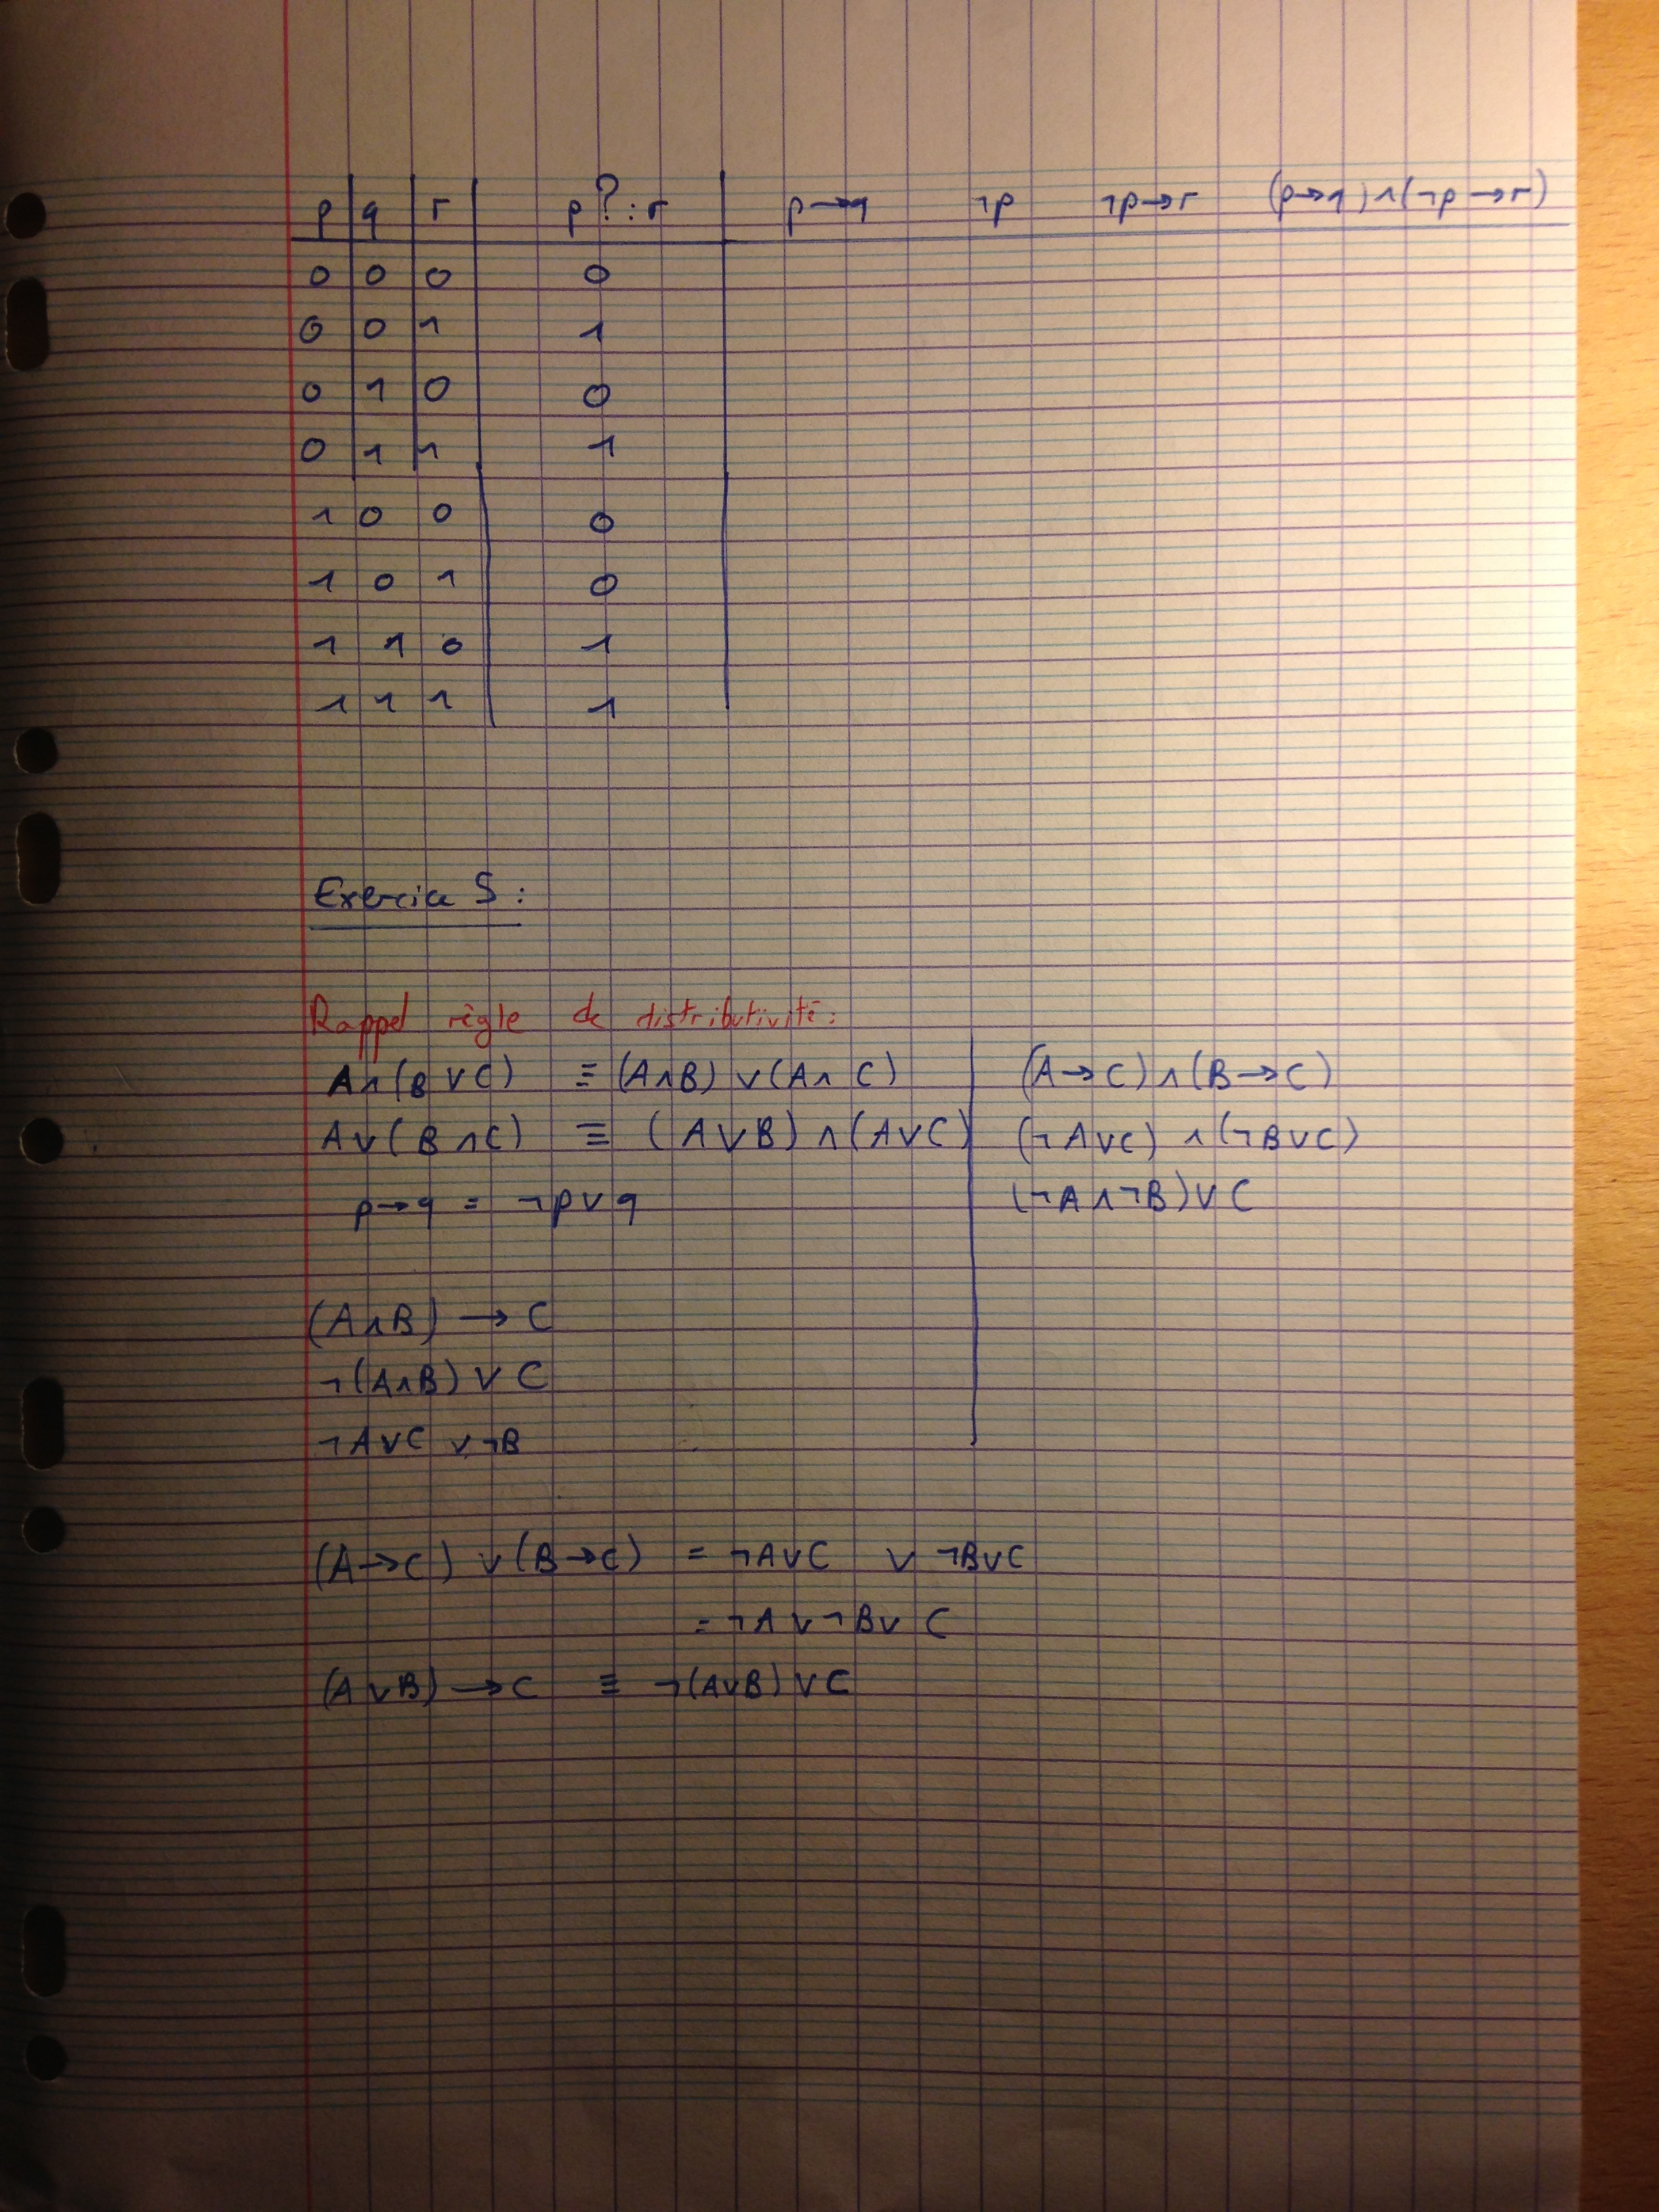 p q r p ? : r p→q ¬p ¬p→r (p→q)∧(¬p→r)
0 0 0 0
0 0 1 1
0 1 0 0
0 1 1 1
1 0 0 0
1 0 1 0
1 1 0 1
1 1 1 1
Exercice 5 :
Rappel règle de distributivité :
A∧(B∨C) ≡ (A∧B)∨(A∧C)
A∨(B∧C) ≡ (A∨B)∧(A∨C)
p→q = ¬p∨q
(A∧B)→C
¬(A∧B)∨C
¬A∨C∨¬B
(A→C)∧(B→C)
(¬A∨C)∧(¬B∨C)
(¬A∧¬B)∨C
(A→C)∨(B→C) = ¬A∨C ∨ ¬B∨C
= ¬A∨¬B∨C
(A∨B)→C ≡ ¬(A∨B)∨C